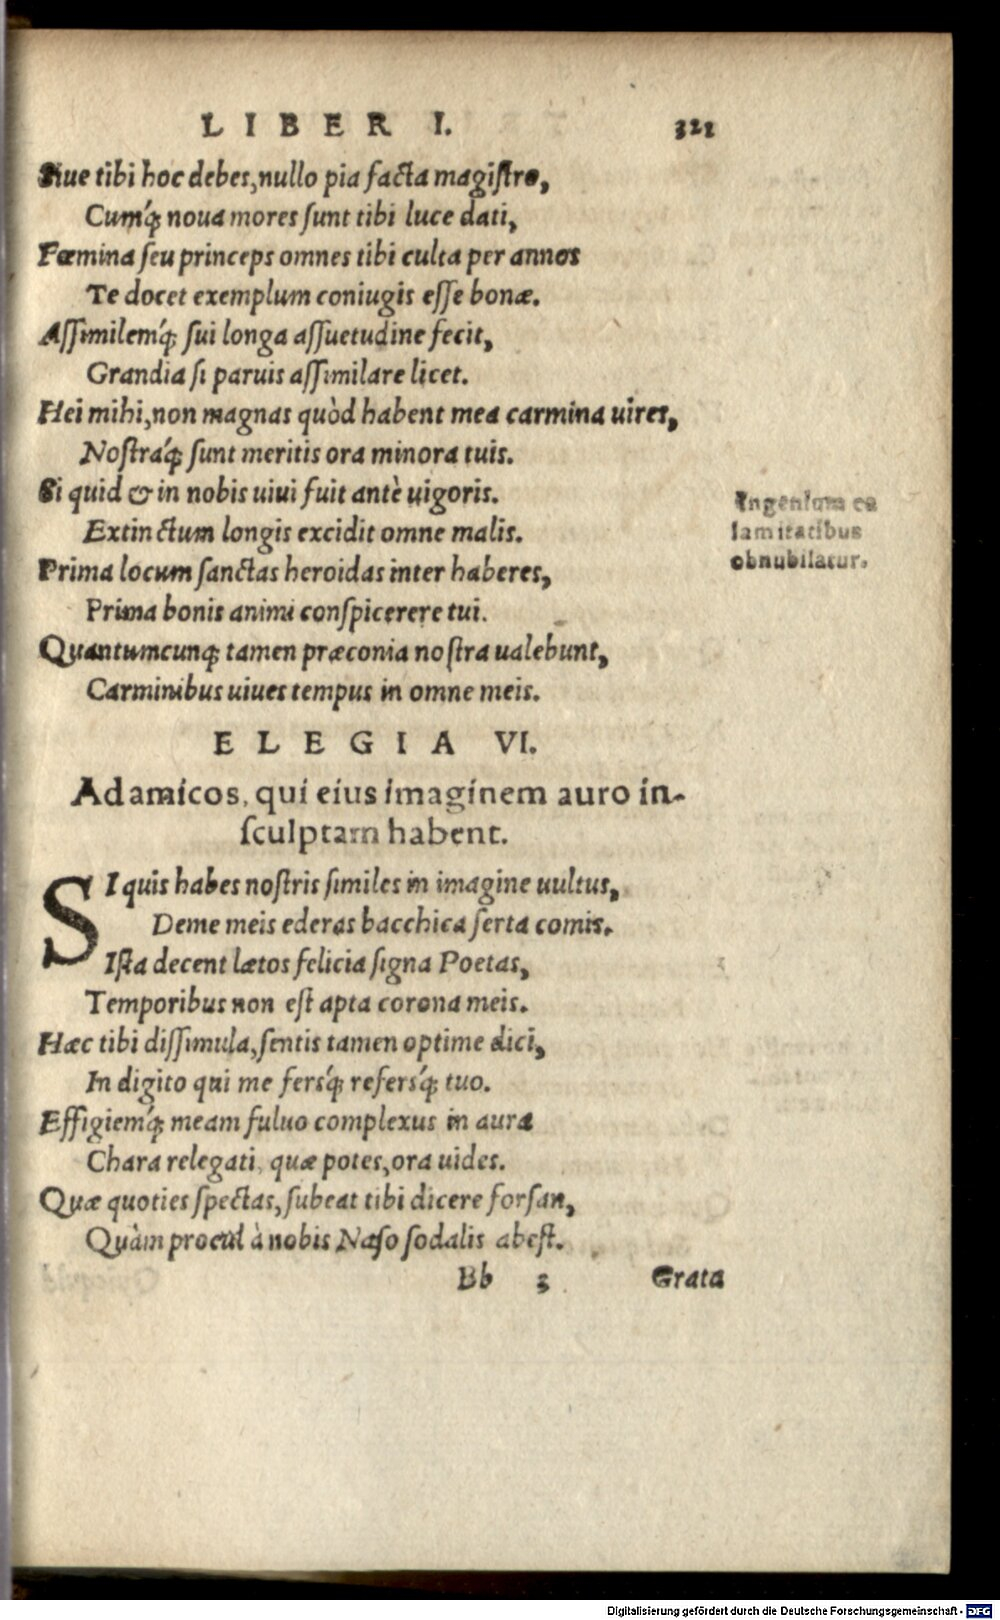 LIBER I. 321
Siue tibi hoc debes, nullo pia facta magistro,
Cumq́; noua mores sunt tibi luce dati,
Fœmina seu princeps omnes tibi culta per annos
Te docet exemplum coniugis esse bonæ.
Assimilemq́; sui longa assuetudine fecit,
Grandia si paruis assimilare licet.
Hei mihi, non magnas quòd habent mea carmina uires,
Nostraq́; sunt meritis ora minora tuis.
Si quid & in nobis uiui fuit antè uigoris.
Extinctum longis excidit omne malis.
Prima locum sanctas heroidas inter haberes,
Prima bonis animi conspicerere tui.
Quantumcunq; tamen præconia nostra ualebunt,
Carminibus uiues tempus in omne meis.
Ingenium ca
lamitatibus
obnubilatur.
ELEGIA VI.
Ad amicos, qui eius imaginem auro in-
sculptam habent.
SI quis habes nostris similes in imagine uultus,
Deme meis ederas bacchica serta comis.
Ista decent lætos felicia signa Poetas,
Temporibus non est apta corona meis.
Hæc tibi dissimula, sentis tamen optime dici,
In digito qui me fersq́; refersq́; tuo.
Effigiemq́; meam fuluo complexus in auro
Chara relegati, quæ potes, ora uides.
Quæ quoties spectas, subeat tibi dicere forsan,
Quàm procul à nobis Naso sodalis abest.
Bb 3 Grata
Digitalisierung gefördert durch die Deutsche Forschungsgemeinschaft - DFG